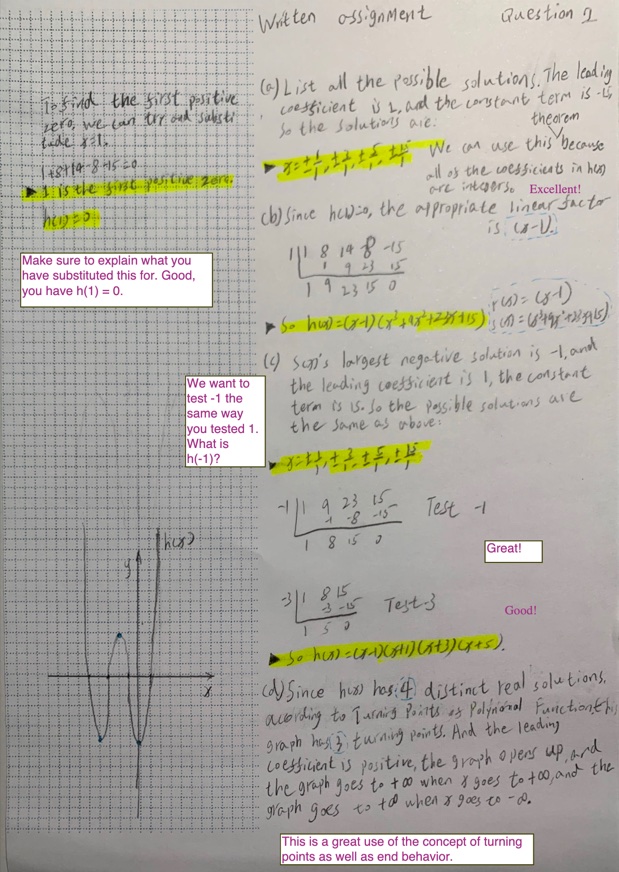 Written assignment Question 1
To find the first positive
zero, we can try and substi
tude x=1.
1+8+14-8-15=0
▶ 1 is the first positive zero.
h(1)=0
Make sure to explain what you
have substituted this for. Good,
you have h(1) = 0.
(a) List all the possible solutions. The leading
coefficient is 1, and the constant term is -15,
so the solutions are:
theorem
▶ x=±1/1, ±3/1, ±5/1, ±15/1 We can use this because
all of the coefficients in h(x)
are integers.
Excellent!
(b) Since h(1)=0, the appropriate linear factor
is (x-1).
1 | 1 8 14 -8 -15
1 9 23 15
1 9 23 15 0
▶ So h(x)=(x-1)(x³+9x²+23x+15)
r(x)=(x-1)
s(x)=(x³+9x²+23x+15)
(c) s(x)'s largest negative solution is -1, and
the leading coefficient is 1, the constant
term is 15. So the possible solutions are
the same as above:
We want to
test -1 the
same way
you tested 1.
What is
h(-1)?
▶ x=±1/1, ±3/1, ±5/1, ±15/1
-1 | 1 9 23 15 Test -1
-1 -8 -15
1 8 15 0
Great!
-3 | 1 8 15 Test-3
-3 -15
1 5 0
Good!
▶ So h(x)=(x-1)(x+1)(x+3)(x+5).
h(x)
y
x
(d) Since h(x) has 4 distinct real solutions,
according to Turning Points of Polynomial Function, this
graph has 3 turning points. And the leading
coefficient is positive, the graph opens up, and
the graph goes to +∞ when x goes to +∞, and the
graph goes to +∞ when x goes to -∞.
This is a great use of the concept of turning
points as well as end behavior.